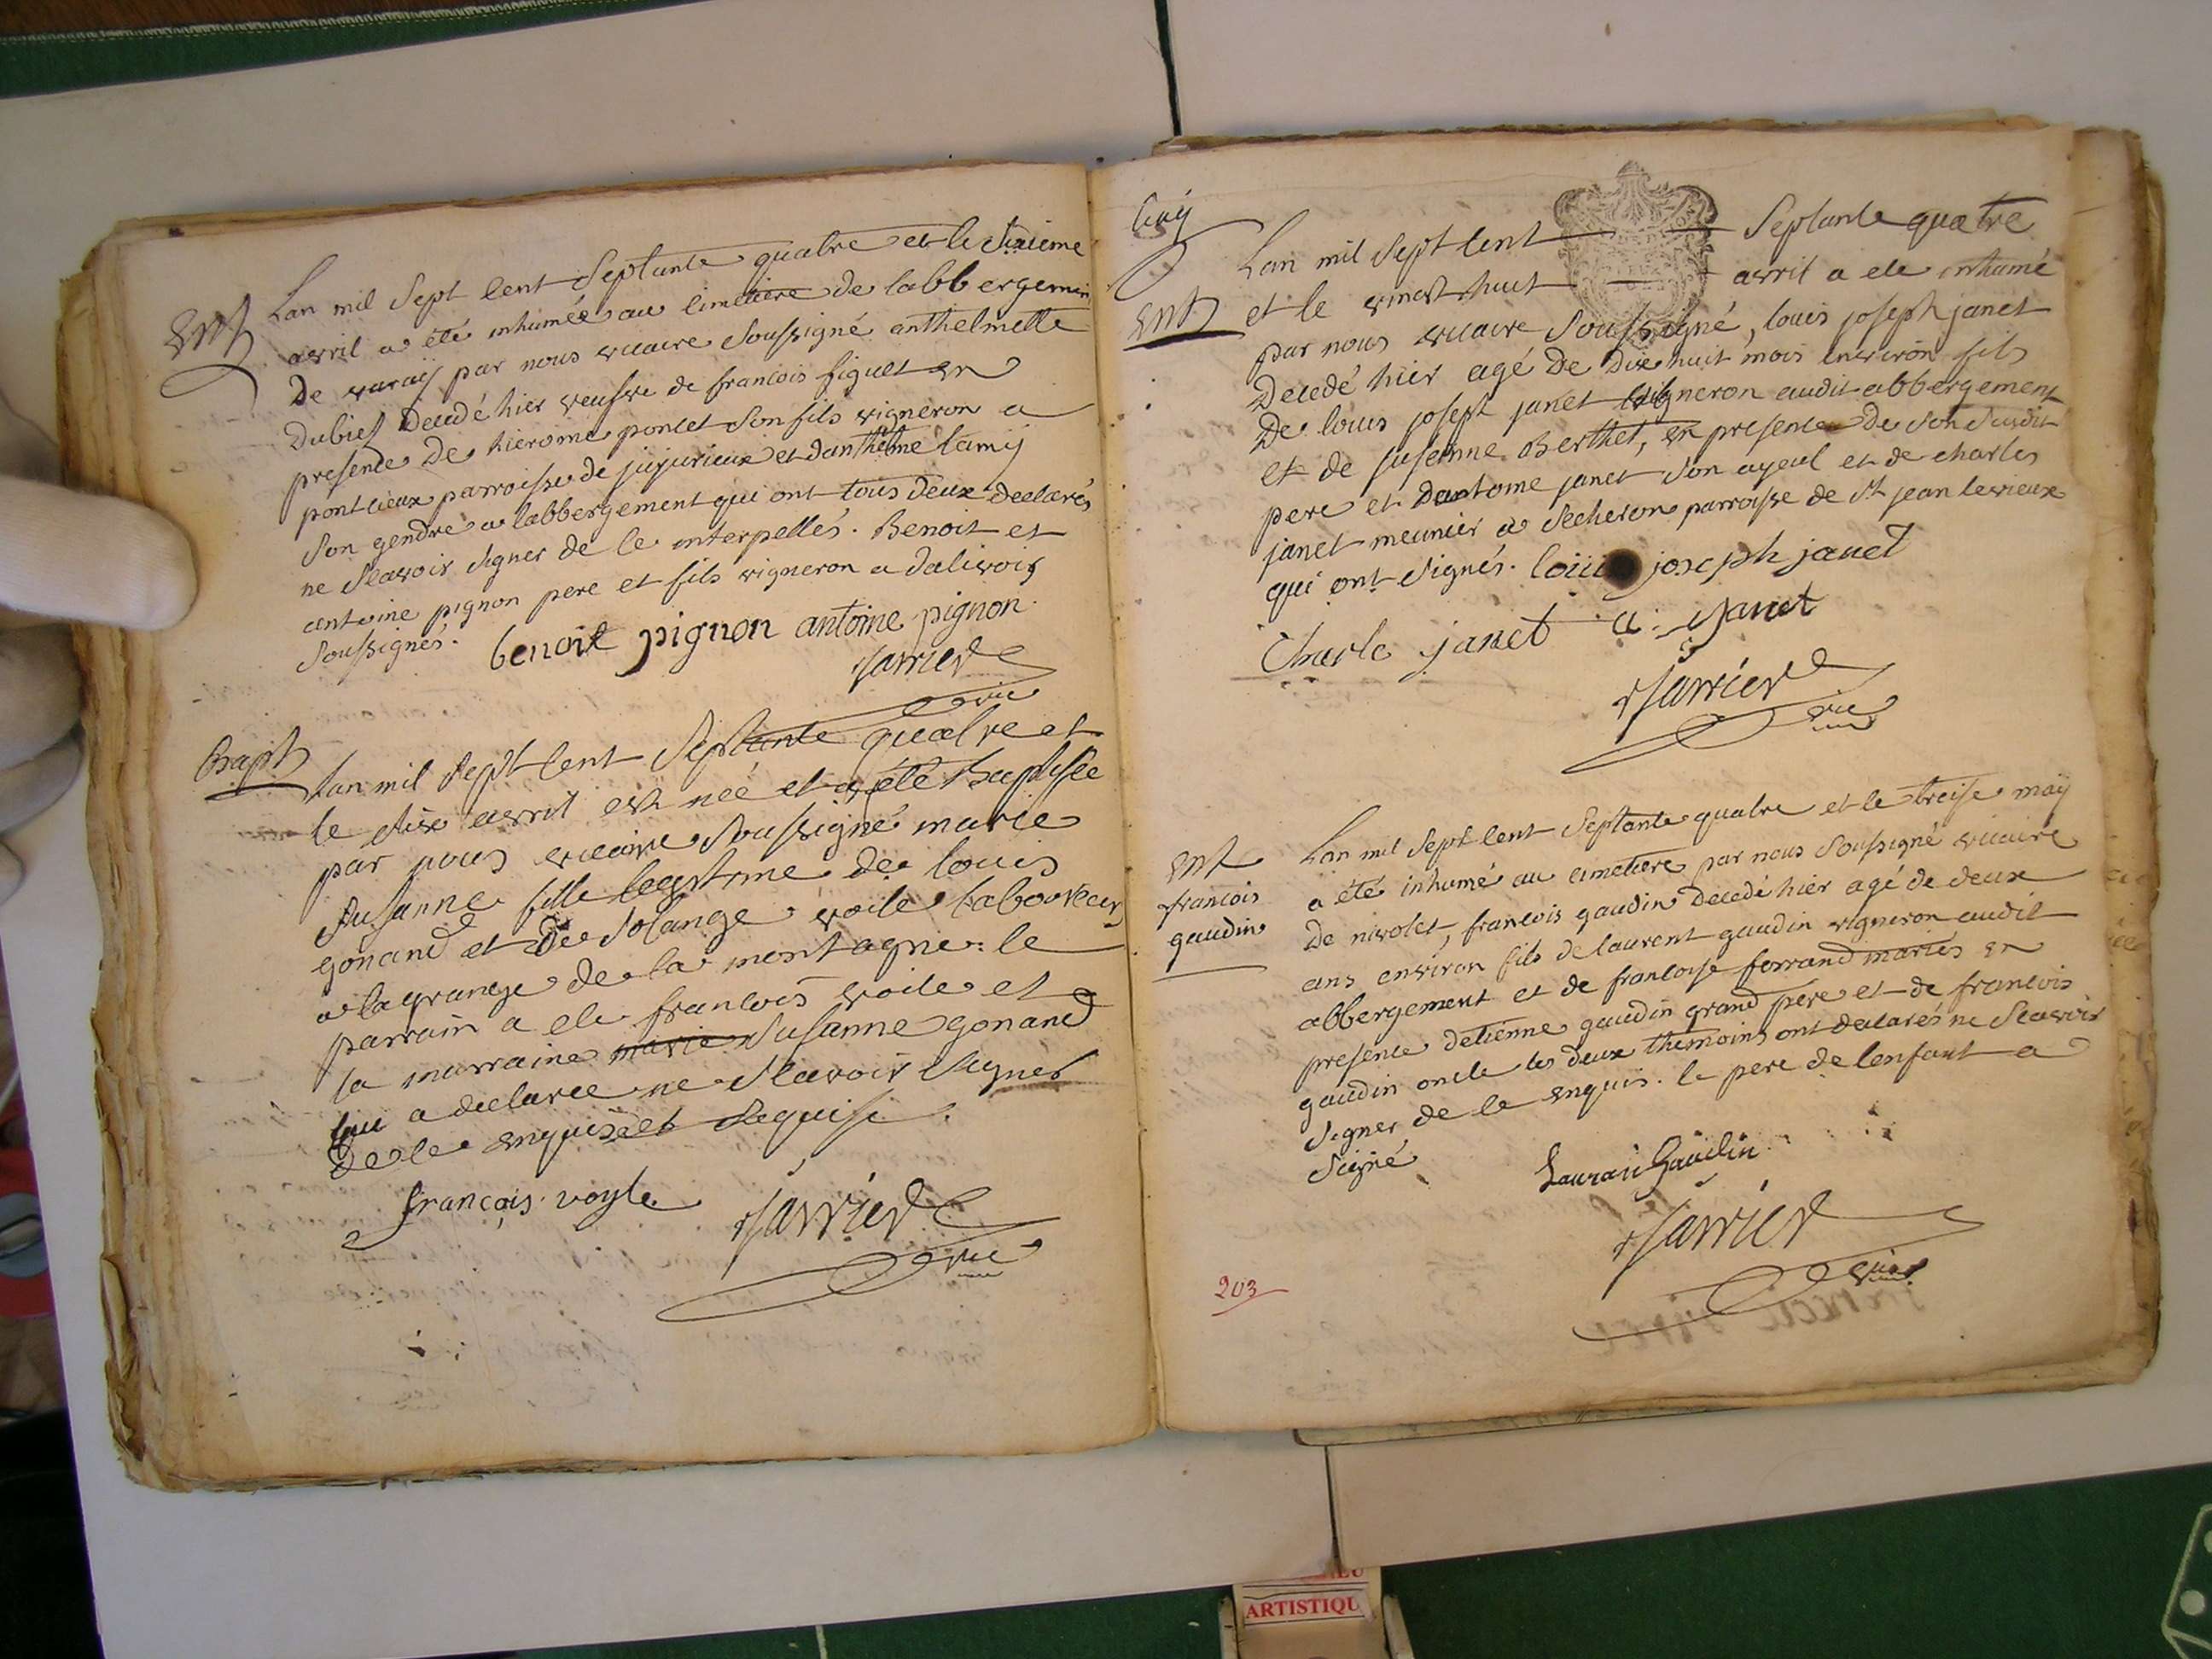 Ent
Lan mil Sept Cent Septante quatre et le Sixieme
avril a été inhumée au cimetiere de labbergement
De varaÿ par nous vicaire Soussigné anthelmette
Dubief Decedé hier veufve de francois figuet en
presence De hierome poncet Son fils vigneron a
pontcieux parroisse de jujurieux et danthelme lamy
Son gendre a labbergement qui ont tous Deux declarés
ne Scavoir Signer de ce interpellés. Benoit et
antoine pignon pere et fils vigneron a Dalivoix
Soussignés. benoit pignon antoine pignon
Jarrier
vic
Bapt
Lan mil Sept Cent Septante quatre et
le Dix avril est née et a été Baptisée
par nous vicaire Soussigné marie
Susanne fille legitime de louis
gonand et De Solange voile Laboureur
a la grange de la montagne. le
parrain a ete francois voile et
la marraine marie Susanne gonand
qui a declaree ne Scavoir Signer
De ce enquise et Requise.
françois voyle Jarrier
vic
Ent
Lan mil Sept Cent Septante quatre
et le vingt huit avril a ete inhumé
par nous vicaire Soussigné, louis joseph janet
Decedé hier agé De Dix huit mois environ fils
De louis joseph janet vigneron audit abbergement
et de Susanne Berthet, en presence De Son Susdit
pere et Dantoine janet Son ayeul et de charles
janet meunier a Secheron parroisse de St jean levieux
qui ont Signés. louis joseph janet
Charle janet a. Janet
Jarrier
vic
Ent
francois
gaudin
Lan mil Sept Cent Septante quatre et le treise may
a été inhumé au cimetiere par nous Soussigné vicaire
De nivolet, francois gaudin Decedé hier agé de deux
ans environ fils de laurent gaudin vigneron audit
abbergement et de francoise ferrand mariés en
presence detienne gaudin grand pere et de francois
gaudin oncle les deux themoins ont declarés ne Scavoir
Signer de ce enquis. le pere de lenfant a
Signé Laurant Gaudin
Jarrier
vic
203
ARTISTIQU